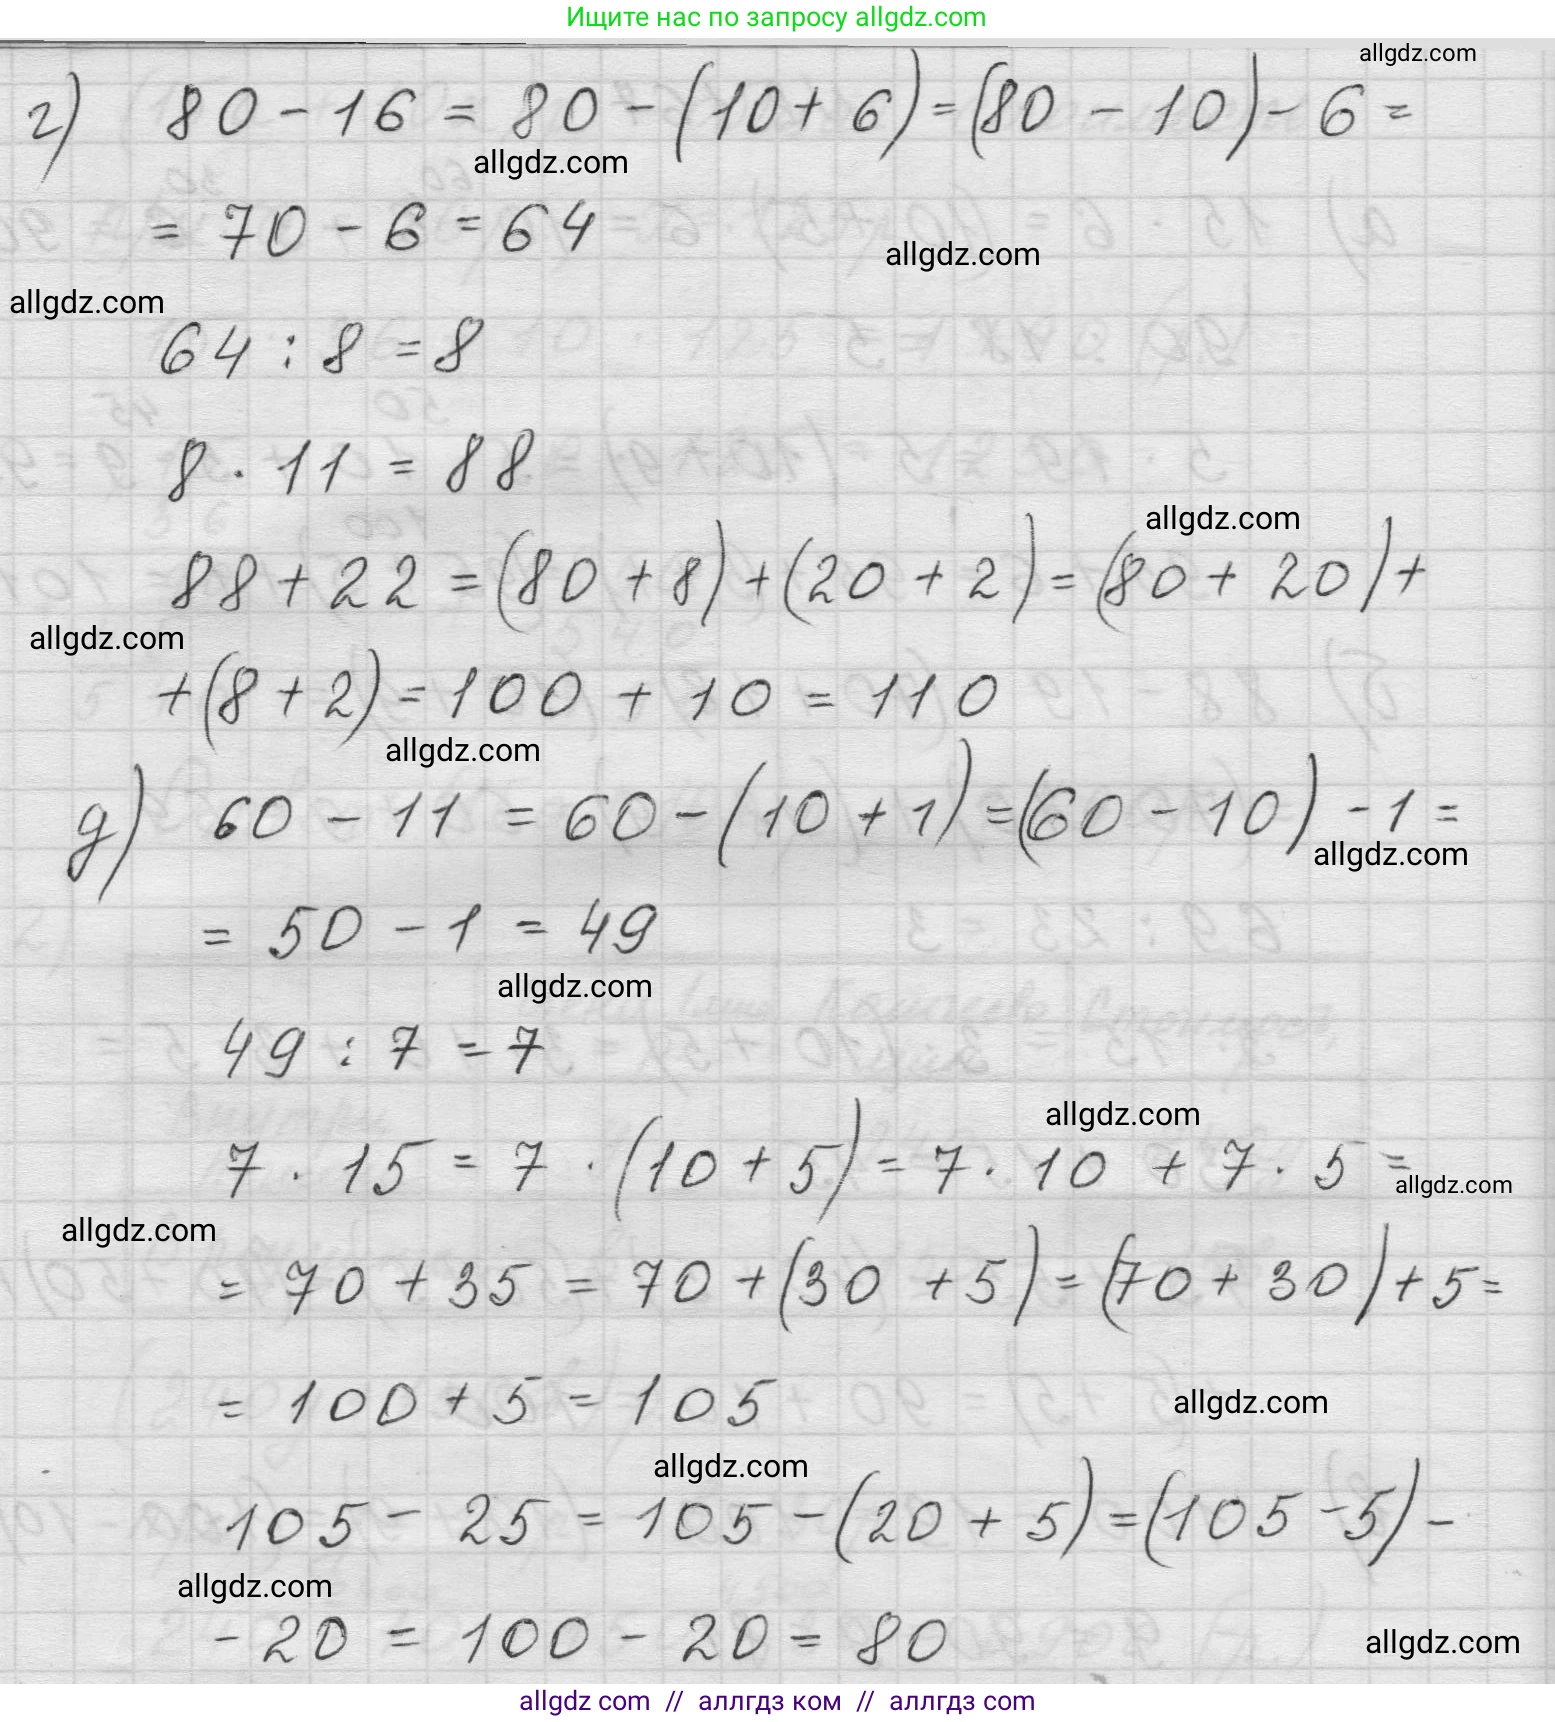 Ищите нас по запросу allgdz.com
allgdz.com
г) 80 - 16 = 80 - (10 + 6) = (80 - 10) - 6 =
allgdz.com
= 70 - 6 = 64
allgdz.com
allgdz.com
64 : 8 = 8
8 · 11 = 88
allgdz.com
88 + 22 = (80 + 8) + (20 + 2) = (80 + 20) +
allgdz.com
+ (8 + 2) = 100 + 10 = 110
allgdz.com
д) 60 - 11 = 60 - (10 + 1) = (60 - 10) - 1 =
allgdz.com
= 50 - 1 = 49
allgdz.com
49 : 7 = 7
allgdz.com
7 · 15 = 7 · (10 + 5) = 7 · 10 + 7 · 5 =
allgdz.com
allgdz.com
= 70 + 35 = 70 + (30 + 5) = (70 + 30) + 5 =
= 100 + 5 = 105
allgdz.com
allgdz.com
105 - 25 = 105 - (20 + 5) = (105 - 5) -
allgdz.com
- 20 = 100 - 20 = 80
allgdz.com
allgdz com // аллгдз ком // аллгдз com